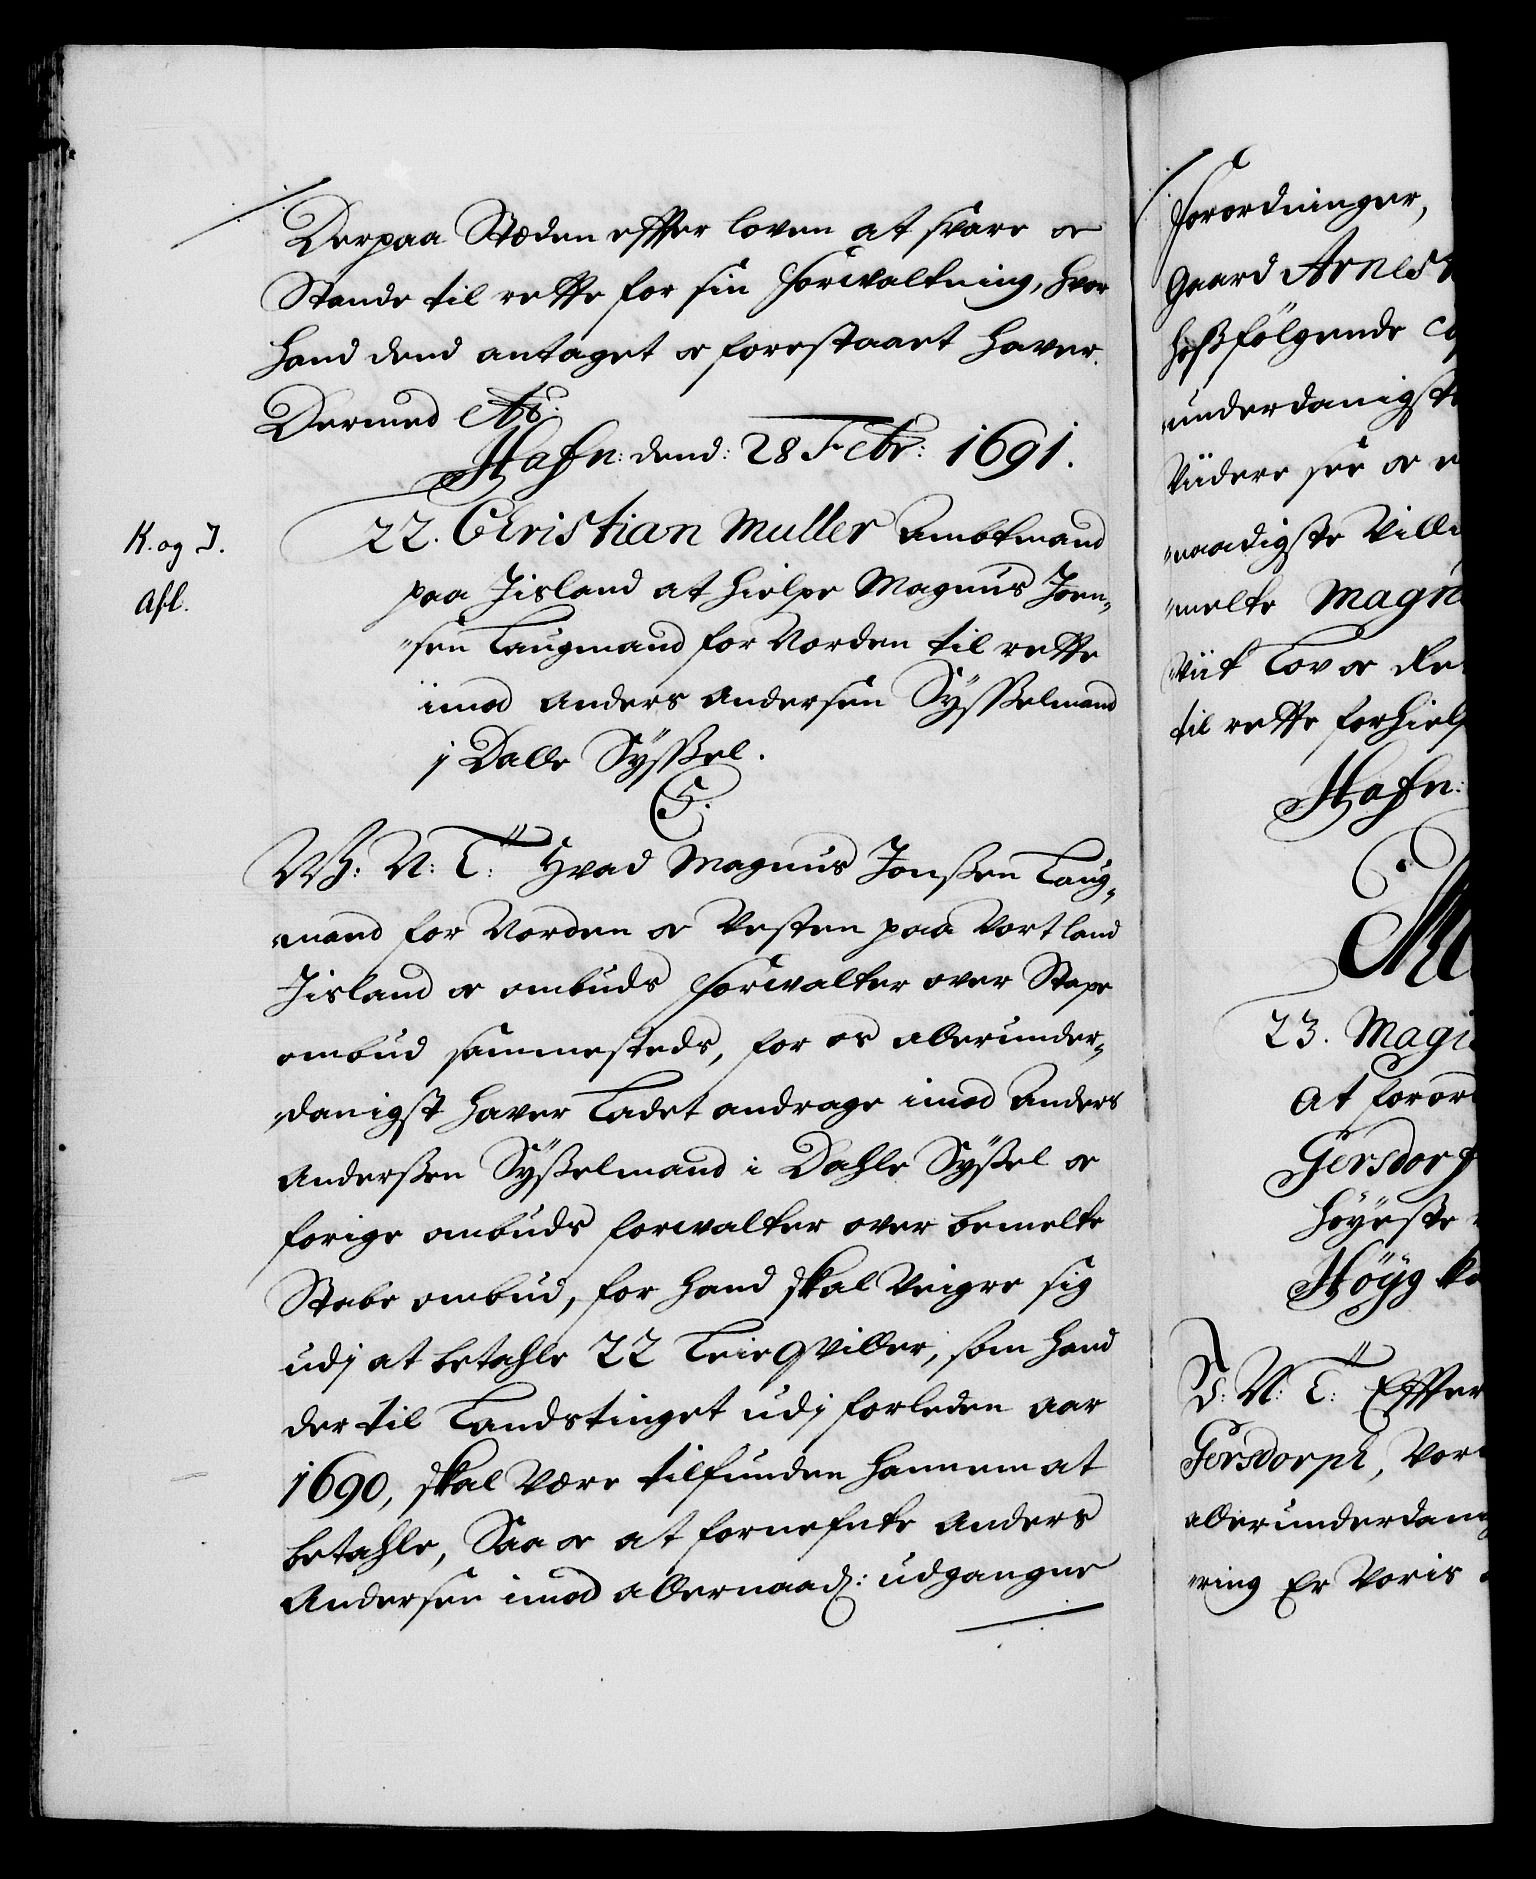 Derpaa Stæden effter loven at svare oc
Stande til rette for sin forvaltning, hvor
hand dend antaget oc forestaaet haver.
Dermed etc:
Hafn: dend: 28 Febr: 1691.
K. og I.
Afl.
22. Christian Muller Ambtmand
paa Iisland at hielpe Magnus Joen„
„sen Laugmand for Norden til rette
imod Anders Andersen Sÿsselmand
j Dalle Sÿssel.
C5.
W: N: T: Hvad Magnus Jonßen Laug„
„mand for Norden oc Vesten paa Vort land
Iisland oc ombuds forvalter over Stape
ombud sammesteds, for os allerunder„
„danigst haver Ladet andrage imod Anders
Anderßen Sÿßelmand i Dahle Sÿßel oc
forige ombuds forvalter over bemelte
Stabe ombud, for hand skal Veigre sig
udj at betahle 22 Leieqviller, som hand
der til Landstinget udj forleden aar
1690, skal Være tilfunden hannem at
betahle, Saa oc at fornefnte Anders
Andersen imod allernaad: udgangne
forordninger,
gaard Arnes
hoßfölgende
underdanigst
Viidere see oc
„naadigste Ville
„melte Magn
Viit Lov oc Re
til rette forhielp
Hafn:
23. Magi
At foror
Gersdorf
höÿeste
Höÿg
D: N: T: Effter
Gersdorph, Vor
allerunderdanig
„ring Er Voris